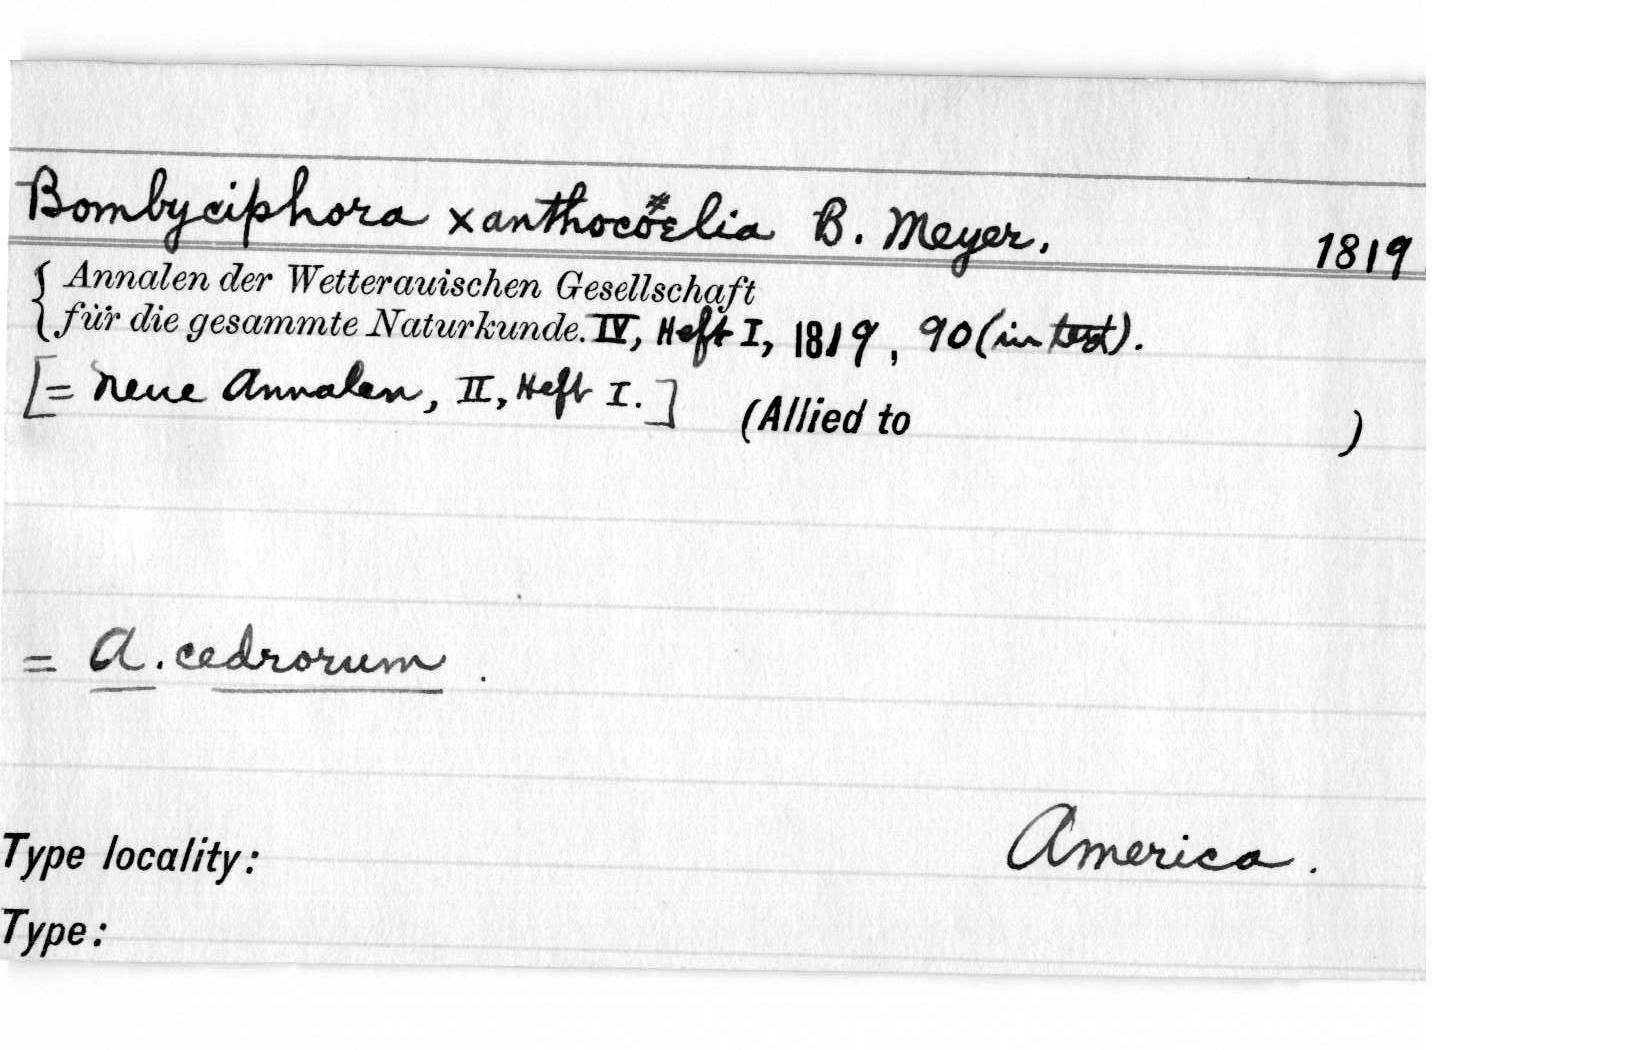 Bombyciphora xanthocœlia B. Meyer. 1819
Annalen der Wetterauischen Gesellschaft
für die gesammte Naturkunde. IV, Heft I, 1819, 90 (in text).
[= Neue Annalen, II, Heft I.] (Allied to )
= A. cedrorum.
Type locality: America.
Type: